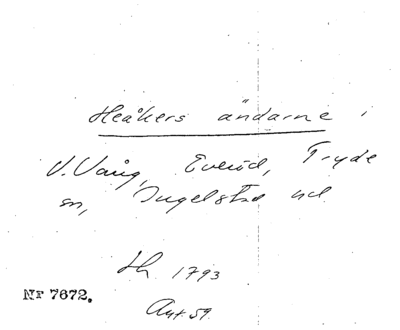 Heåkers ändarne i
V. Vång, Everöd, Tryde
sn, Ingelstad hd
Hh 1793
Nr 7672.
Akt 59.